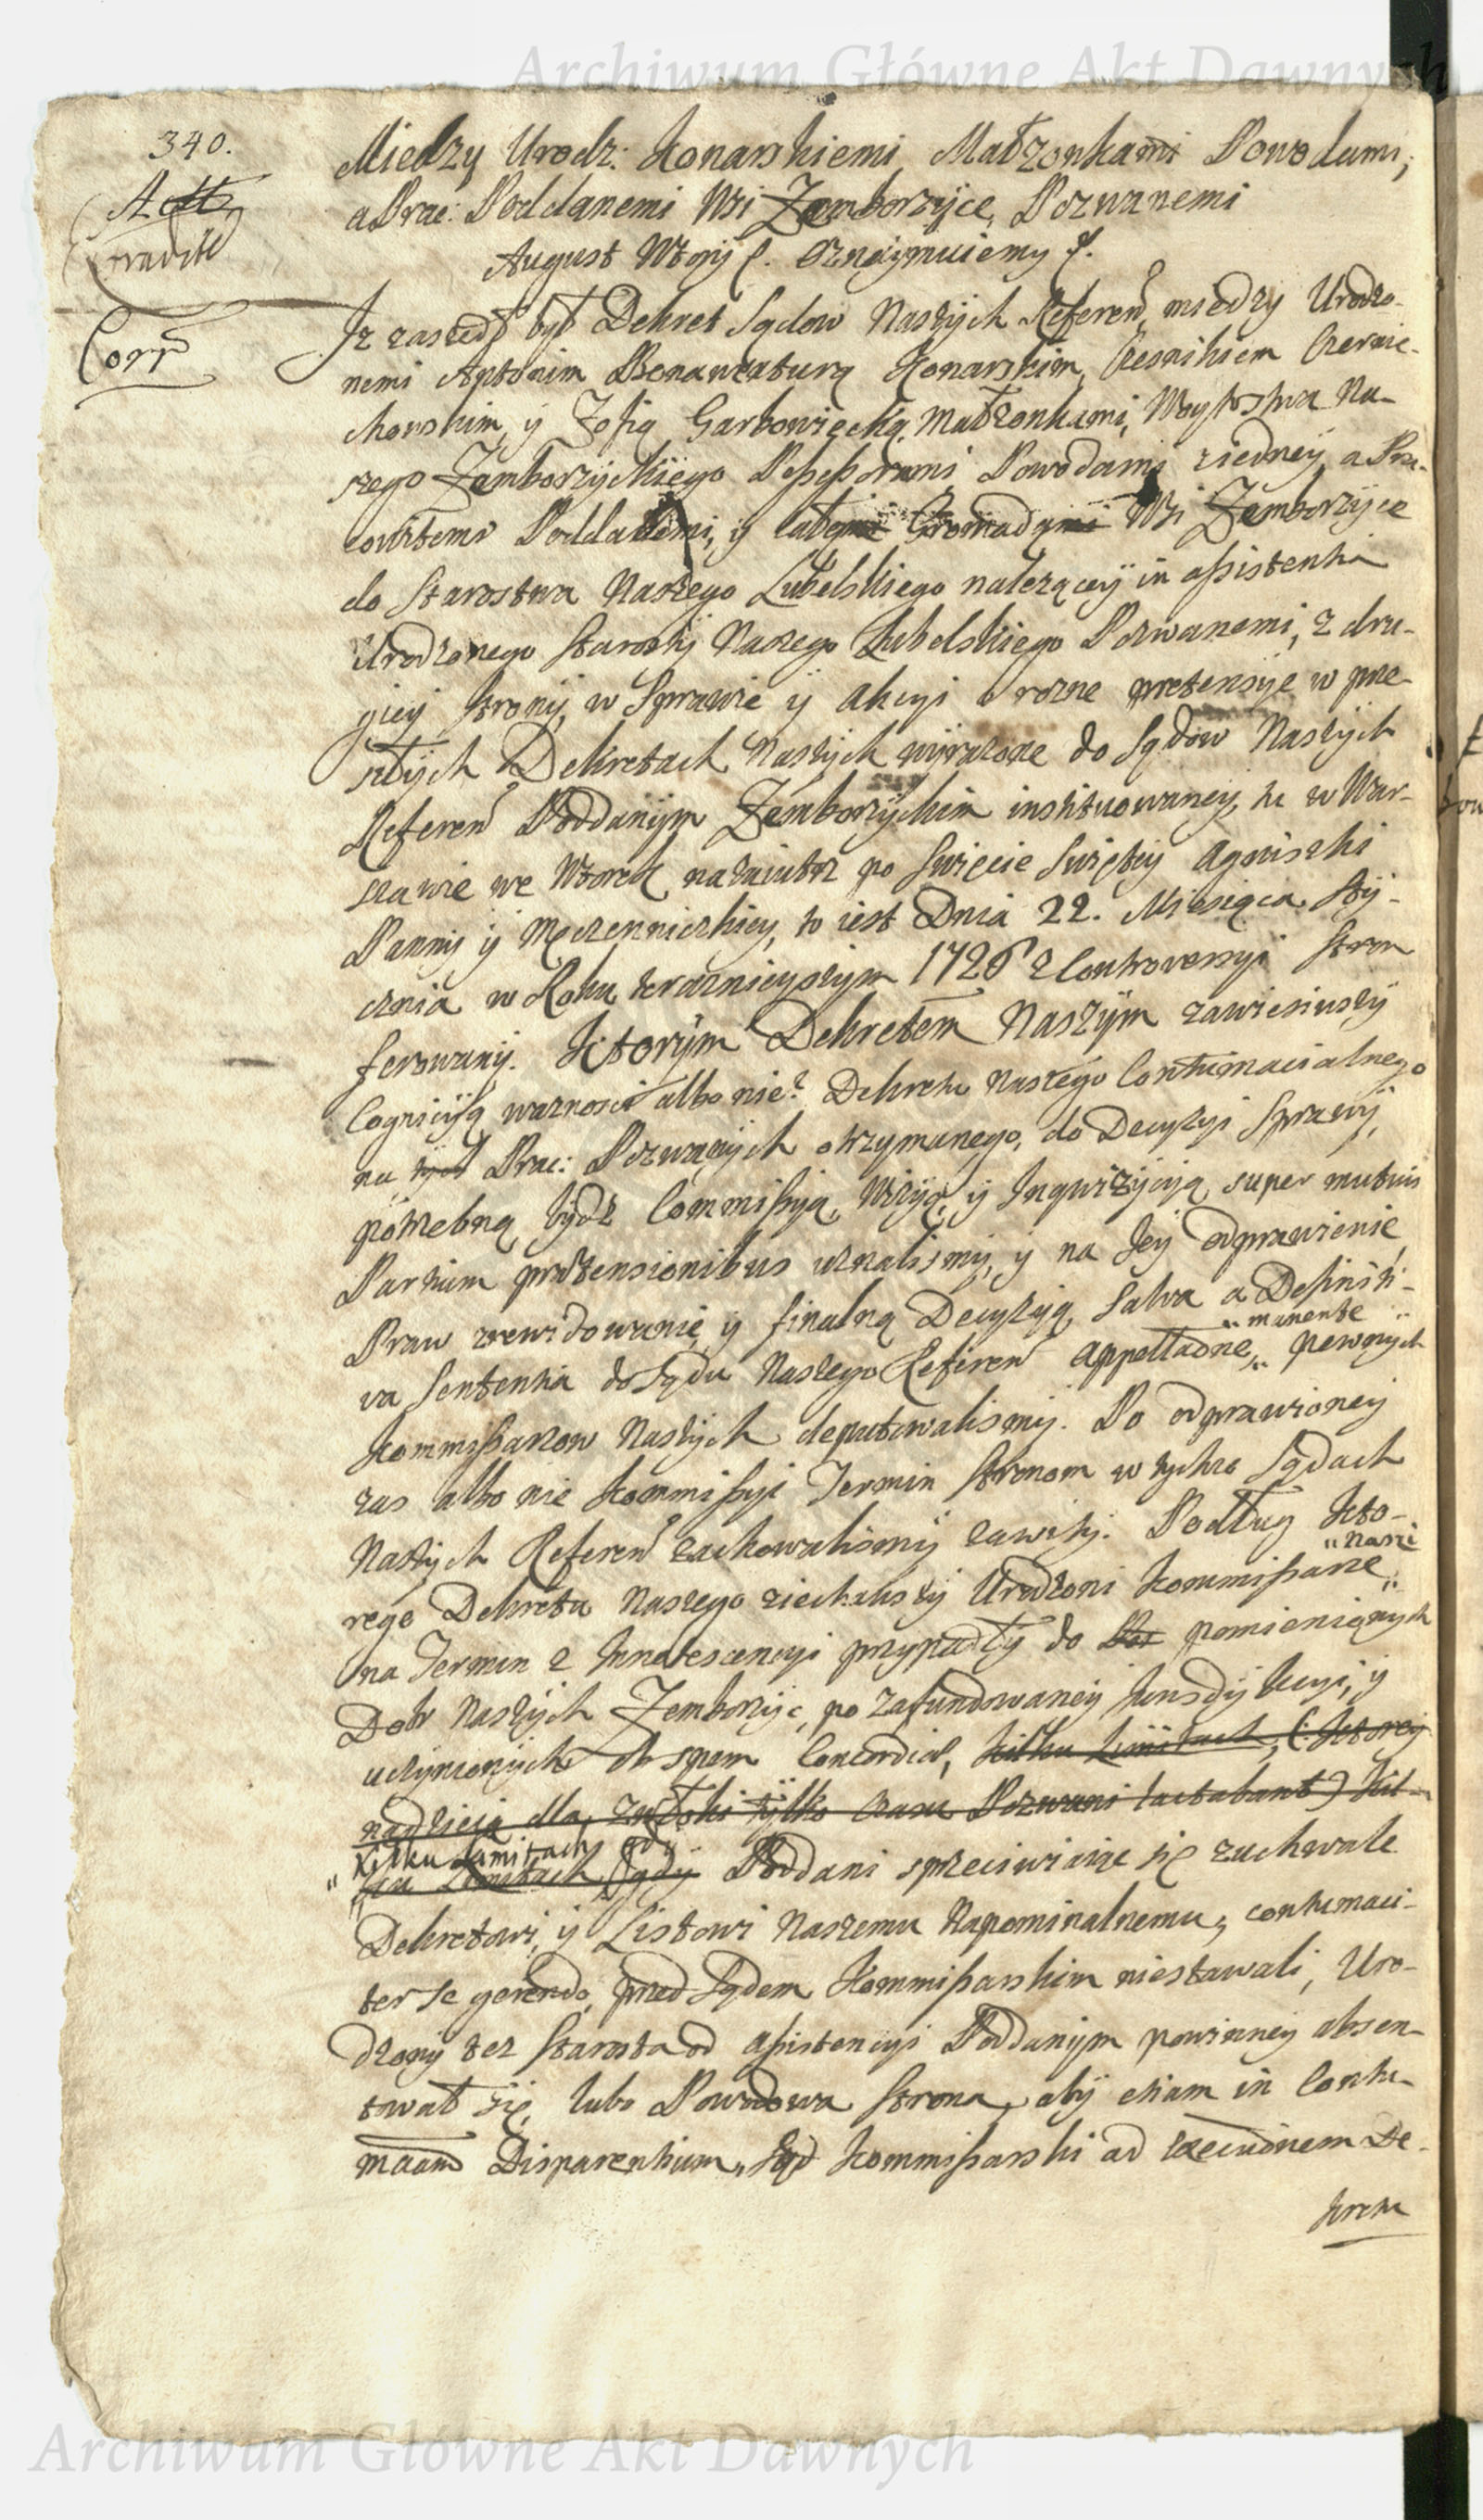 Archiwum Główne Akt Dawnych
340.
Miedzy Urodz: Konarskiemi Małzonkami Powodami,
a Prac: Poddanemi Wsi Zemborzyce, Pozwanemi
August Wtory Oznaymuiemy
Corr
Iz zaszedł był Dekret Sądow Naszych Referen miedzy Urodzo-
nemi Antonim Bonawenturą Konarskim, Czesnikiem Czernie-
chowskim, y Zofią Garbowięcką, Małzonkami, Woytostwa Na-
szego Zemborzyckiego Possessorami Powodami z iedney, a Pra-
cowitemi Poddanemi, y całą Gromadą Wsi Zemborzyce
do Starostwa Naszego Lubelskiego nalezącey in assistentia
Urodzonego Starosty Naszego Lubelskiego Pozwanemi, z dru-
giey strony, w Sprawie y Akcyi o rozne pretensye w prze-
szłych Dekretach Naszych wyrazone do Sądow Naszych
Referen Poddanym Zemborzyckim instituowaney, tu w War-
szawie we Wtorek nazaiutrz po Swięcie Swiętey Agnieszki
Panny y Męczenniczkiey, to iest Dnia 22. Miesiąca Sty-
cznia w Roku teraznieyszym 1726 z Controversyi Stron
ferowany. Ktorym Dekretem Naszym zawiesiwszy
Cognicyą waznosci albo nie? Dekretu Naszego Contumacialnego
na Prac: Pozwanych otrzymanego, do Decyzyi Sprawy,
potrzebną bydz Commissyą, Wizyą, y Inqwizycyą super mutuis
Partium prætensionibus uznalismy, y na Jey odprawienie,
Praw zrewidowanie, y finalną Decyzyą, Salva a Definiti-
va Sententia do Sądu Naszego Referen Appellaone, „manente„ pewnych
Kommissarzow Naszych deputowalismy. Po odprawioney
zas albo nie Kommissyi Termin Stronom w tychze Sądach
Naszych Referen zachowalismy zawity. Podług Kto-
rego Dekretu Naszego ziechawszy Urodzeni Kommissarze „Nasi„
na Termin z Innotescencyi przypadły do pomienionych
Dobr Naszych Zemborzyc, po zafundowaney Jurisdykcyi, y
uczynionych ob spem Concordiæ, kilku Limitach, (: Ktorey
nadzieią dla zwłoki tylko czasu Pozwani lactabant) kil-
„Kilku Limitach gdy
ku Limitach, gdy Poddani sprzeciwiaiąc się zuchwale
Dekretowi, y Listowi Naszemu Napominalnemu, contumaci-
ter se gerendo, przed Sądem Kommissarskim niestawali, Uro-
dzony tez Starosta od assistencyi Poddanym powinney absen-
tował się, lubo Powodowa Strona, aby etiam in Contu-
maam Disparentium, Sąd Kommissarski ad execuonem De-
kretu
Archiwum Główne Akt Dawnych